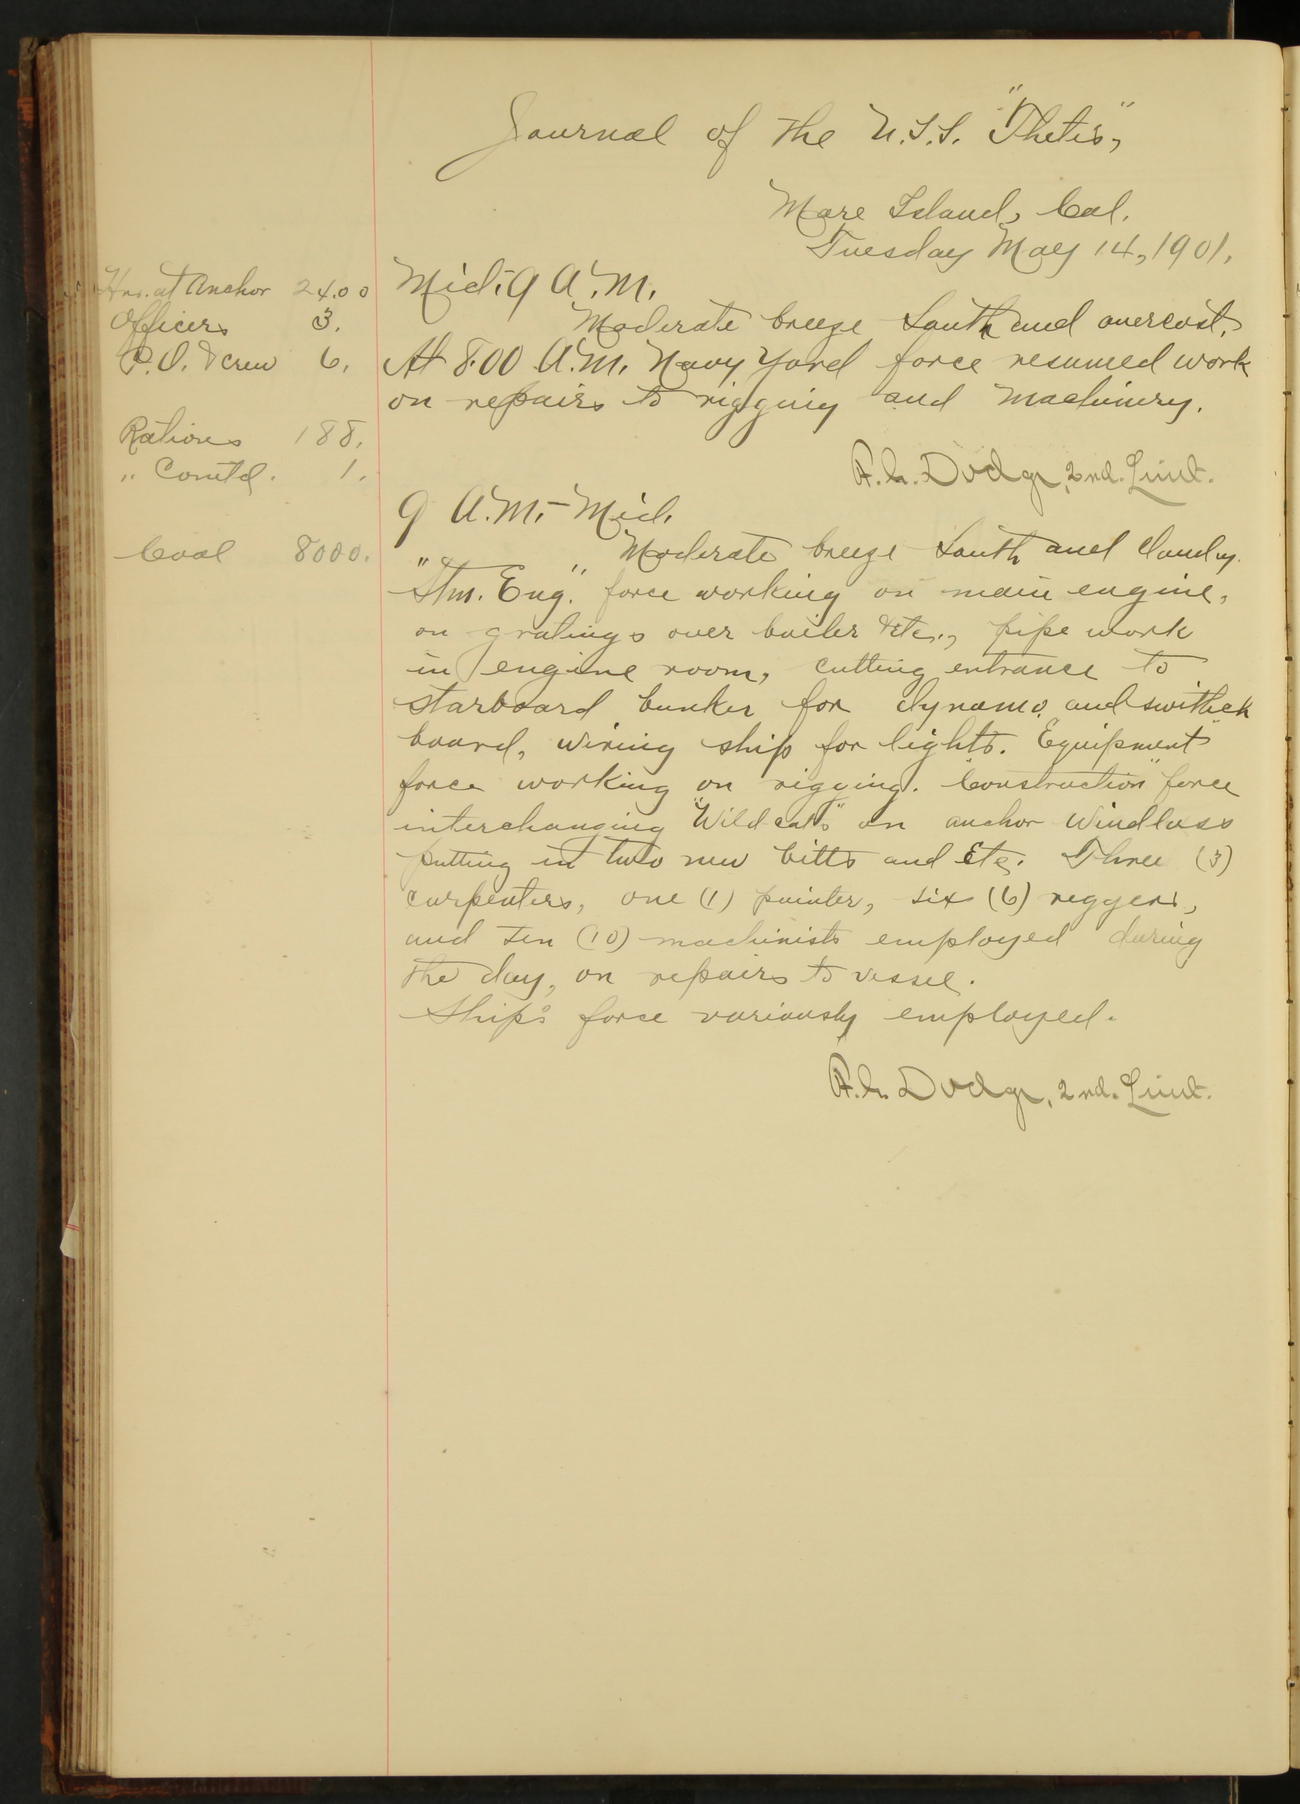 Journal of the U.S.S. "Thetis",
Mare Island, Cal.
Tuesday May 14, 1901.
Hrs. at Anchor 24.00
Officers 3.
P.O. & Crew 6.
Rations 188.
" Com'td. 1.
Coal 8000.
Mid.-9 A.M.
Moderate breeze South and overcast.
At 8.00 A.M. Navy Yard force resumed work
on repairs to rigging and machinery.
Dodge, 2nd. Lieut.
9 A.M.-Mid.
Moderate breeze South and cloudy.
"Stm. Eng." force working on main engine,
on gratings over boiler &Etc., pipe work
in engine room, cutting entrance to
starboard bunker for dynamo and switch
board, wiring ship for lights. Equipment
force working on rigging. "Construction" force
interchanging "Wildcats" on anchor windlass
putting in two new bitts and Etc. Three (3)
carpenters, one (1) painter, six (6) riggers,
and ten (10) machinists employed during
the day, on repairs to vessel.
Ship's force variously employed.
Dodge, 2nd. Lieut.